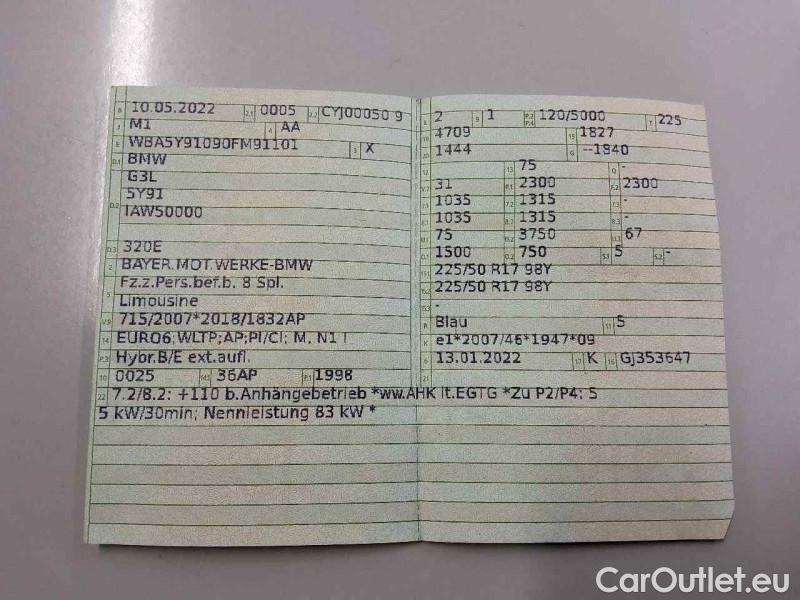 B 10.05.2022 2.1 0005 2.2 CYJ00050 9
J M1 4 AA
E WBA5Y91090FM91101 3 X
D.1 BMW
G3L
D.2 5Y91
IAW50000
D.3 320E
2 BAYER.MOT.WERKE-BMW
Fz.z.Pers.bef.b. 8 Spl.
5 Limousine
V.9 715/2007*2018/1832AP
14 EURO6;WLTP;AP;PI/CI; M, N1 I
P.3 Hybr.B/E ext.aufl.
10 0025 14.1 36AP P.1 1998
22 7.2/8.2: +110 b.Anhängebetrieb *ww.AHK lt.EGTG *Zu P2/P4: 5
5 kW/30min; Nennleistung 83 kW *
L 2 9 1 P.2 P.4 120/5000 T 225
18 4709 19 1827
20 1444 G --1840
13 75 Q -
V.7 31 F.1 2300 F.2 2300
7.1 1035 7.2 1315 7.3 -
8.1 1035 8.2 1315 8.3 -
U.1 75 U.2 3750 U.3 67
O.1 1500 O.2 750 S.1 5 S.2 -
15.1 225/50 R17 98Y
15.2 225/50 R17 98Y
15.3 -
R Blau 11 5
K e1*2007/46*1947*09
6 13.01.2022 17 K 16 GJ353647
21
CarOutlet.eu